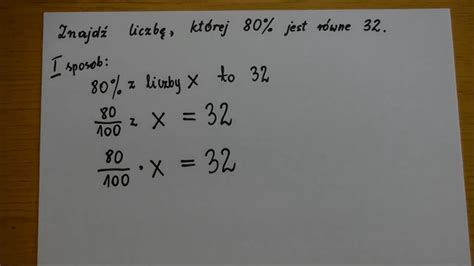 Znajdź liczbę, której 80% jest równe 32.
I sposób:
80% z liczby X to 32
80/100 z X = 32
80/100 · X = 32